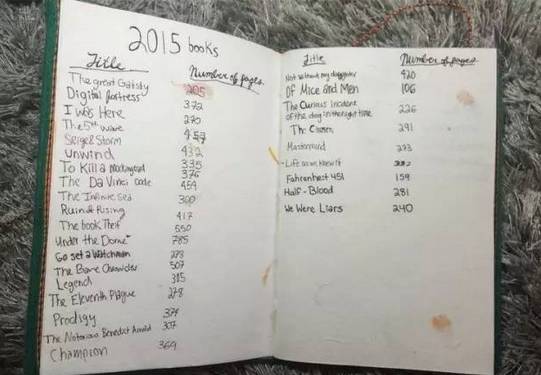 2015 books
Title Number of pages
The great Gatsby 205
Digital fortress 372
I was Here 270
The 5th wave 457
Seige & Storm 432
Unwind 335
To Kill a Mockingbird 376
The Da Vinci code 454
The Infinite Sea 300
Ruin & Rising 417
The book Thief 550
Under the Dome 785
Go set a Watchman 278
The Bane Chronicles 507
Legend 315
The Eleventh Plague 278
Prodigy 374
The Notorious Benedict Arnold 307
Champion 369
Title Number of pages
Not without my daughter 420
Of Mice and Men 106
The Curious Incident
of the dog in the night time 226
The Chosen 291
Mastermind
Life as we knew it
Fahrenheit 451 159
Half-Blood 281
We Were Liars 240